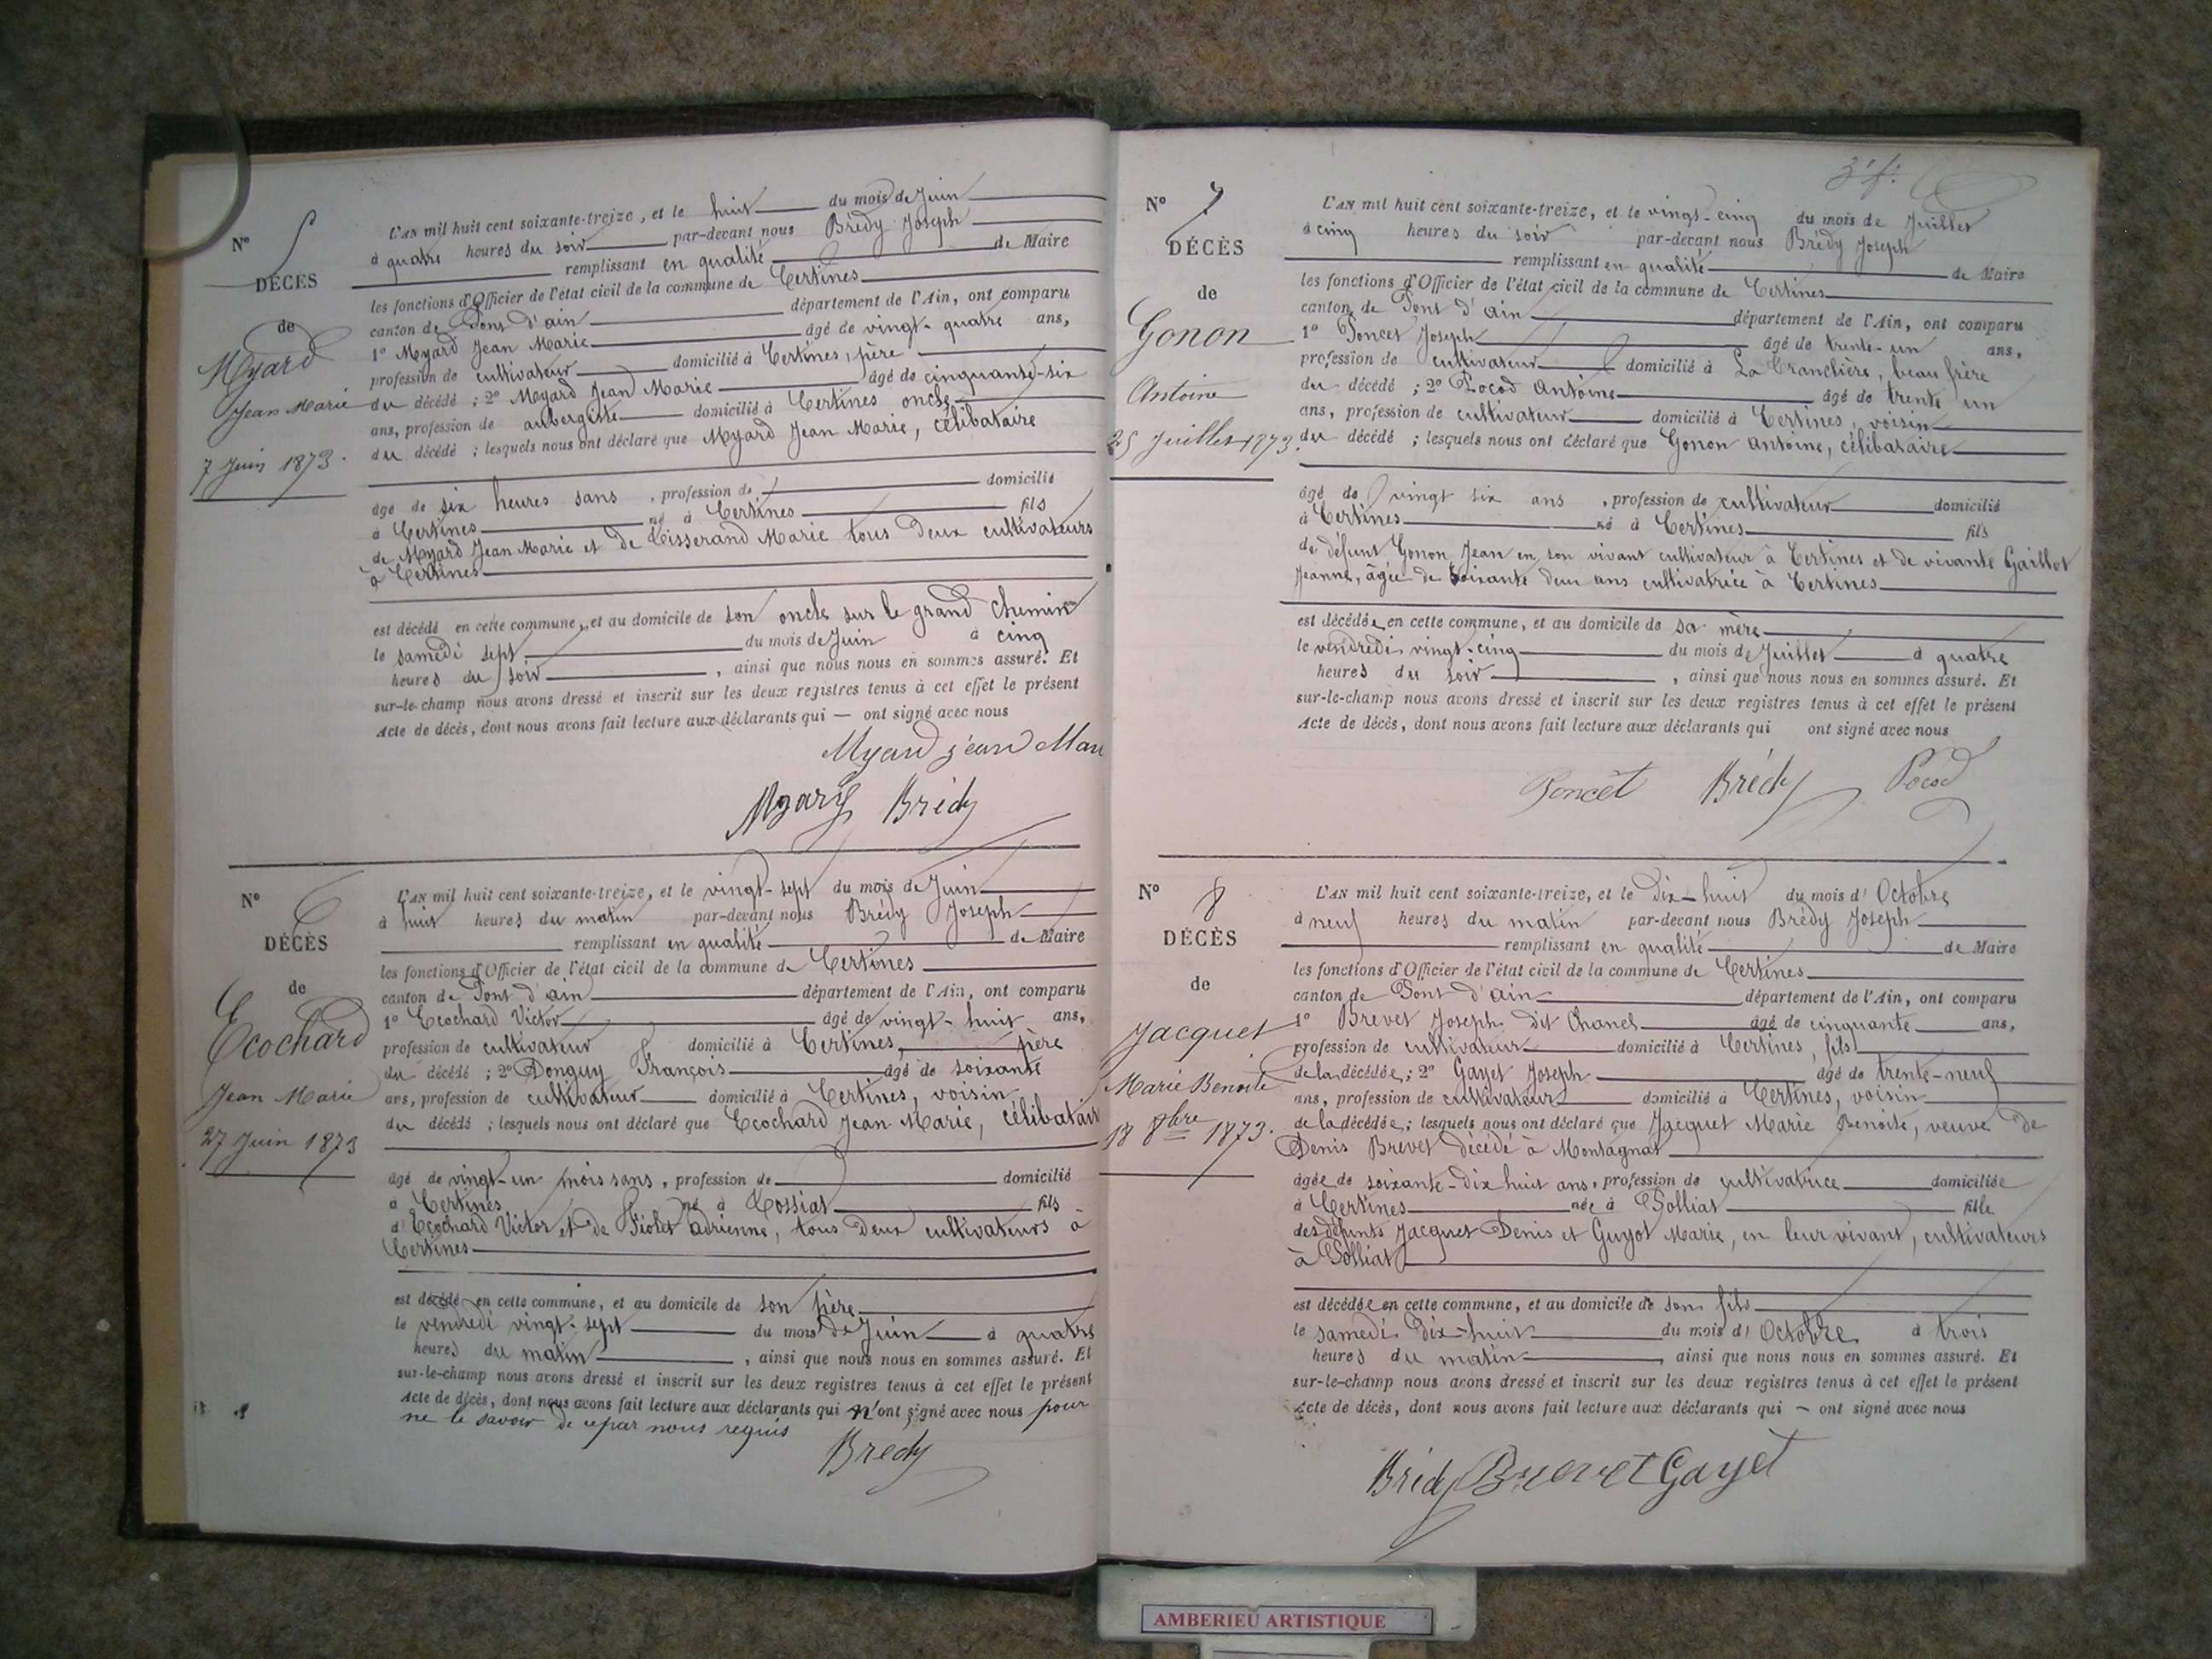 N° 5
DÉCÈS
de
Myard
Jean Marie
7 Juin 1873.
L'AN mil huit cent soixante-treize, et le huit du mois de Juin
à quatre heures du soir par-devant nous Brédy Joseph
remplissant en qualité de Maire
les fonctions d'Officier de l'état civil de la commune de Certines
canton de Pont d'ain département de l'Ain, ont comparu
1° Myard Jean Marie âgé de vingt-quatre ans,
profession de cultivateur domicilié à Certines, père
du décédé ; 2° Myard Jean Marie âgé de cinquante-six
ans, profession de aubergiste domicilié à Certines oncle
du décédé ; lesquels nous ont déclaré que Myard Jean Marie, célibataire
âgé de six heures sans , profession de domicilié
à Certines né à Certines fils
de Myard Jean Marie et de Tisserand Marie tous deux cultivateurs
à Certines
est décédé en cette commune, et au domicile de son oncle sur le grand chemin
le samedi sept du mois de Juin à cinq
heures du soir , ainsi que nous nous en sommes assuré. Et
sur-le-champ nous avons dressé et inscrit sur les deux registres tenus à cet effet le présent
Acte de décès, dont nous avons fait lecture aux déclarants qui — ont signé avec nous
Myard jean Mari
Myard Brédy
N° 6
DÉCÈS
de
Ecochard
Jean Marie
27 Juin 1873
L'AN mil huit cent soixante-treize, et le vingt-sept du mois de Juin
à huit heures du matin par-devant nous Brédy Joseph
remplissant en qualité de Maire
les fonctions d'Officier de l'état civil de la commune de Certines
canton de Pont d'ain département de l'Ain, ont comparu
1° Ecochard Victor âgé de vingt-huit ans,
profession de cultivateur domicilié à Certines, père
du décédé ; 2° Donguy François âgé de soixante
ans, profession de cultivateur domicilié à Certines, voisin
du décédé ; lesquels nous ont déclaré que Ecochard Jean Marie, célibataire
âgé de vingt-un mois sans , profession de domicilié
à Certines né à Tossiat fils
d'Ecochard Victor et de Fiolet adrienne, tous deux cultivateurs à
Certines
est décédé en cette commune, et au domicile de son père
le vendredi vingt-sept du mois de Juin à quatre
heures du matin , ainsi que nous nous en sommes assuré. Et
sur-le-champ nous avons dressé et inscrit sur les deux registres tenus à cet effet le présent
Acte de décès, dont nous avons fait lecture aux déclarants qui n'ont signé avec nous pour
ne le savoir de ce par nous requis
Brédy
N° 7
DÉCÈS
de
Gonon
Antoine
25 Juillet 1873.
L'AN mil huit cent soixante-treize, et le vingt-cinq du mois de Juillet
à cinq heures du soir par-devant nous Brédy Joseph
remplissant en qualité de Maire
les fonctions d'Officier de l'état civil de la commune de Certines
canton de Pont d'ain département de l'Ain, ont comparu
1° Poncet Joseph âgé de trente-un ans,
profession de cultivateur domicilié à La Tranclière, beau frère
du décédé ; 2° Pocod Antoine âgé de trente un
ans, profession de cultivateur domicilié à Certines, voisin
du décédé ; lesquels nous ont déclaré que Gonon antoine, célibataire
âgé de vingt six ans , profession de cultivateur domicilié
à Certines né à Certines fils
de défunt Gonon Jean en son vivant cultivateur à Certines et de vivante Gaillot
Jeanne, âgée de soixante deux ans cultivatrice à Certines
est décédé en cette commune, et au domicile de sa mère
le vendredi vingt-cinq du mois de Juillet à quatre
heures du soir , ainsi que nous nous en sommes assuré. Et
sur-le-champ nous avons dressé et inscrit sur les deux registres tenus à cet effet le présent
Acte de décès, dont nous avons fait lecture aux déclarants qui ont signé avec nous
Poncet Brédy Pocod
N° 8
DÉCÈS
de
Jacquet
Marie Benoite
18 8bre 1873.
L'AN mil huit cent soixante-treize, et le Dix-huit du mois d'Octobre
à neuf heures du matin par-devant nous Brédy Joseph
remplissant en qualité de Maire
les fonctions d'Officier de l'état civil de la commune de Certines
canton de Pont d'ain département de l'Ain, ont comparu
1° Brevet Joseph dit Chanel âgé de cinquante ans,
profession de cultivateur domicilié à Certines, fils
de la décédée ; 2° Gayet Joseph âgé de trente-neuf
ans, profession de cultivateur domicilié à Certines, voisin
de la décédée ; lesquels nous ont déclaré que Jacquet Marie Benoite, veuve de
Denis Brevet décédé à Montagnat
âgée de soixante-dix huit ans, profession de cultivatrice domiciliée
à Certines née à Polliat fille
des défunts Jacquet Denis et Guyot Marie, en leur vivant, cultivateurs
à Polliat
est décédée en cette commune, et au domicile de son fils
le samedi Dix-huit du mois d'Octobre à trois
heures du matin , ainsi que nous nous en sommes assuré. Et
sur-le-champ nous avons dressé et inscrit sur les deux registres tenus à cet effet le présent
Acte de décès, dont nous avons fait lecture aux déclarants qui — ont signé avec nous
Brédy Brevet Gayet
AMBERIEU ARTISTIQUE